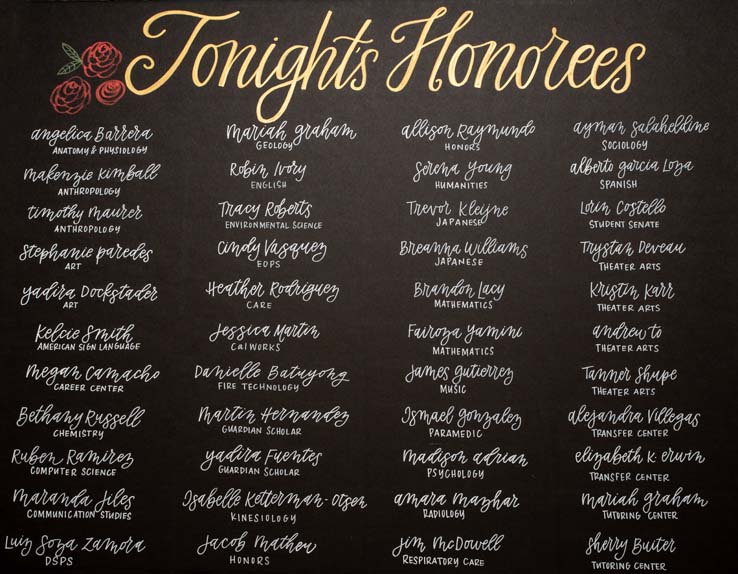 Tonight's Honorees
angelica Barrera
ANATOMY & PHYSIOLOGY
makenzie kimball
ANTHROPOLOGY
timothy maurer
ANTHROPOLOGY
Stephanie paredes
ART
yadira Dockstader
ART
Kelcie Smith
AMERICAN SIGN LANGUAGE
megan Camacho
CAREER CENTER
Bethany Russell
CHEMISTRY
Ruben Ramirez
COMPUTER SCIENCE
maranda Jiles
COMMUNICATION STUDIES
Luis Soza Zamora
DSPS
Mariah graham
GEOLOGY
Robin Ivory
ENGLISH
Tracy Roberts
ENVIRONMENTAL SCIENCE
Cindy Vasquez
EOPS
Heather Rodriguez
CARE
Jessica Martin
CalWORKS
Danielle Batuyong
FIRE TECHNOLOGY
Martin Hernandez
GUARDIAN SCHOLAR
yadira Fuentes
GUARDIAN SCHOLAR
Isabelle Ketterman-Olsen
KINESIOLOGY
Jacob Mathew
HONORS
allison Raymundo
HONORS
Serena young
HUMANITIES
Trevor Kleijne
JAPANESE
Breanna Williams
JAPANESE
Brandon Lacy
MATHEMATICS
Fairoza yamini
MATHEMATICS
James gutierrez
MUSIC
Ismael gonzalez
PARAMEDIC
madison adrian
PSYCHOLOGY
amara mazhar
RADIOLOGY
Jim McDowell
RESPIRATORY CARE
ayman Salaheldine
SOCIOLOGY
alberto garcia Loza
SPANISH
Lorin Costello
STUDENT SENATE
Trystan Deveau
THEATER ARTS
Kristin Karr
THEATER ARTS
andrew to
THEATER ARTS
Tanner Shupe
THEATER ARTS
alejandra Villegas
TRANSFER CENTER
elizabeth k. erwin
TRANSFER CENTER
mariah graham
TUTORING CENTER
sherry Buiter
TUTORING CENTER